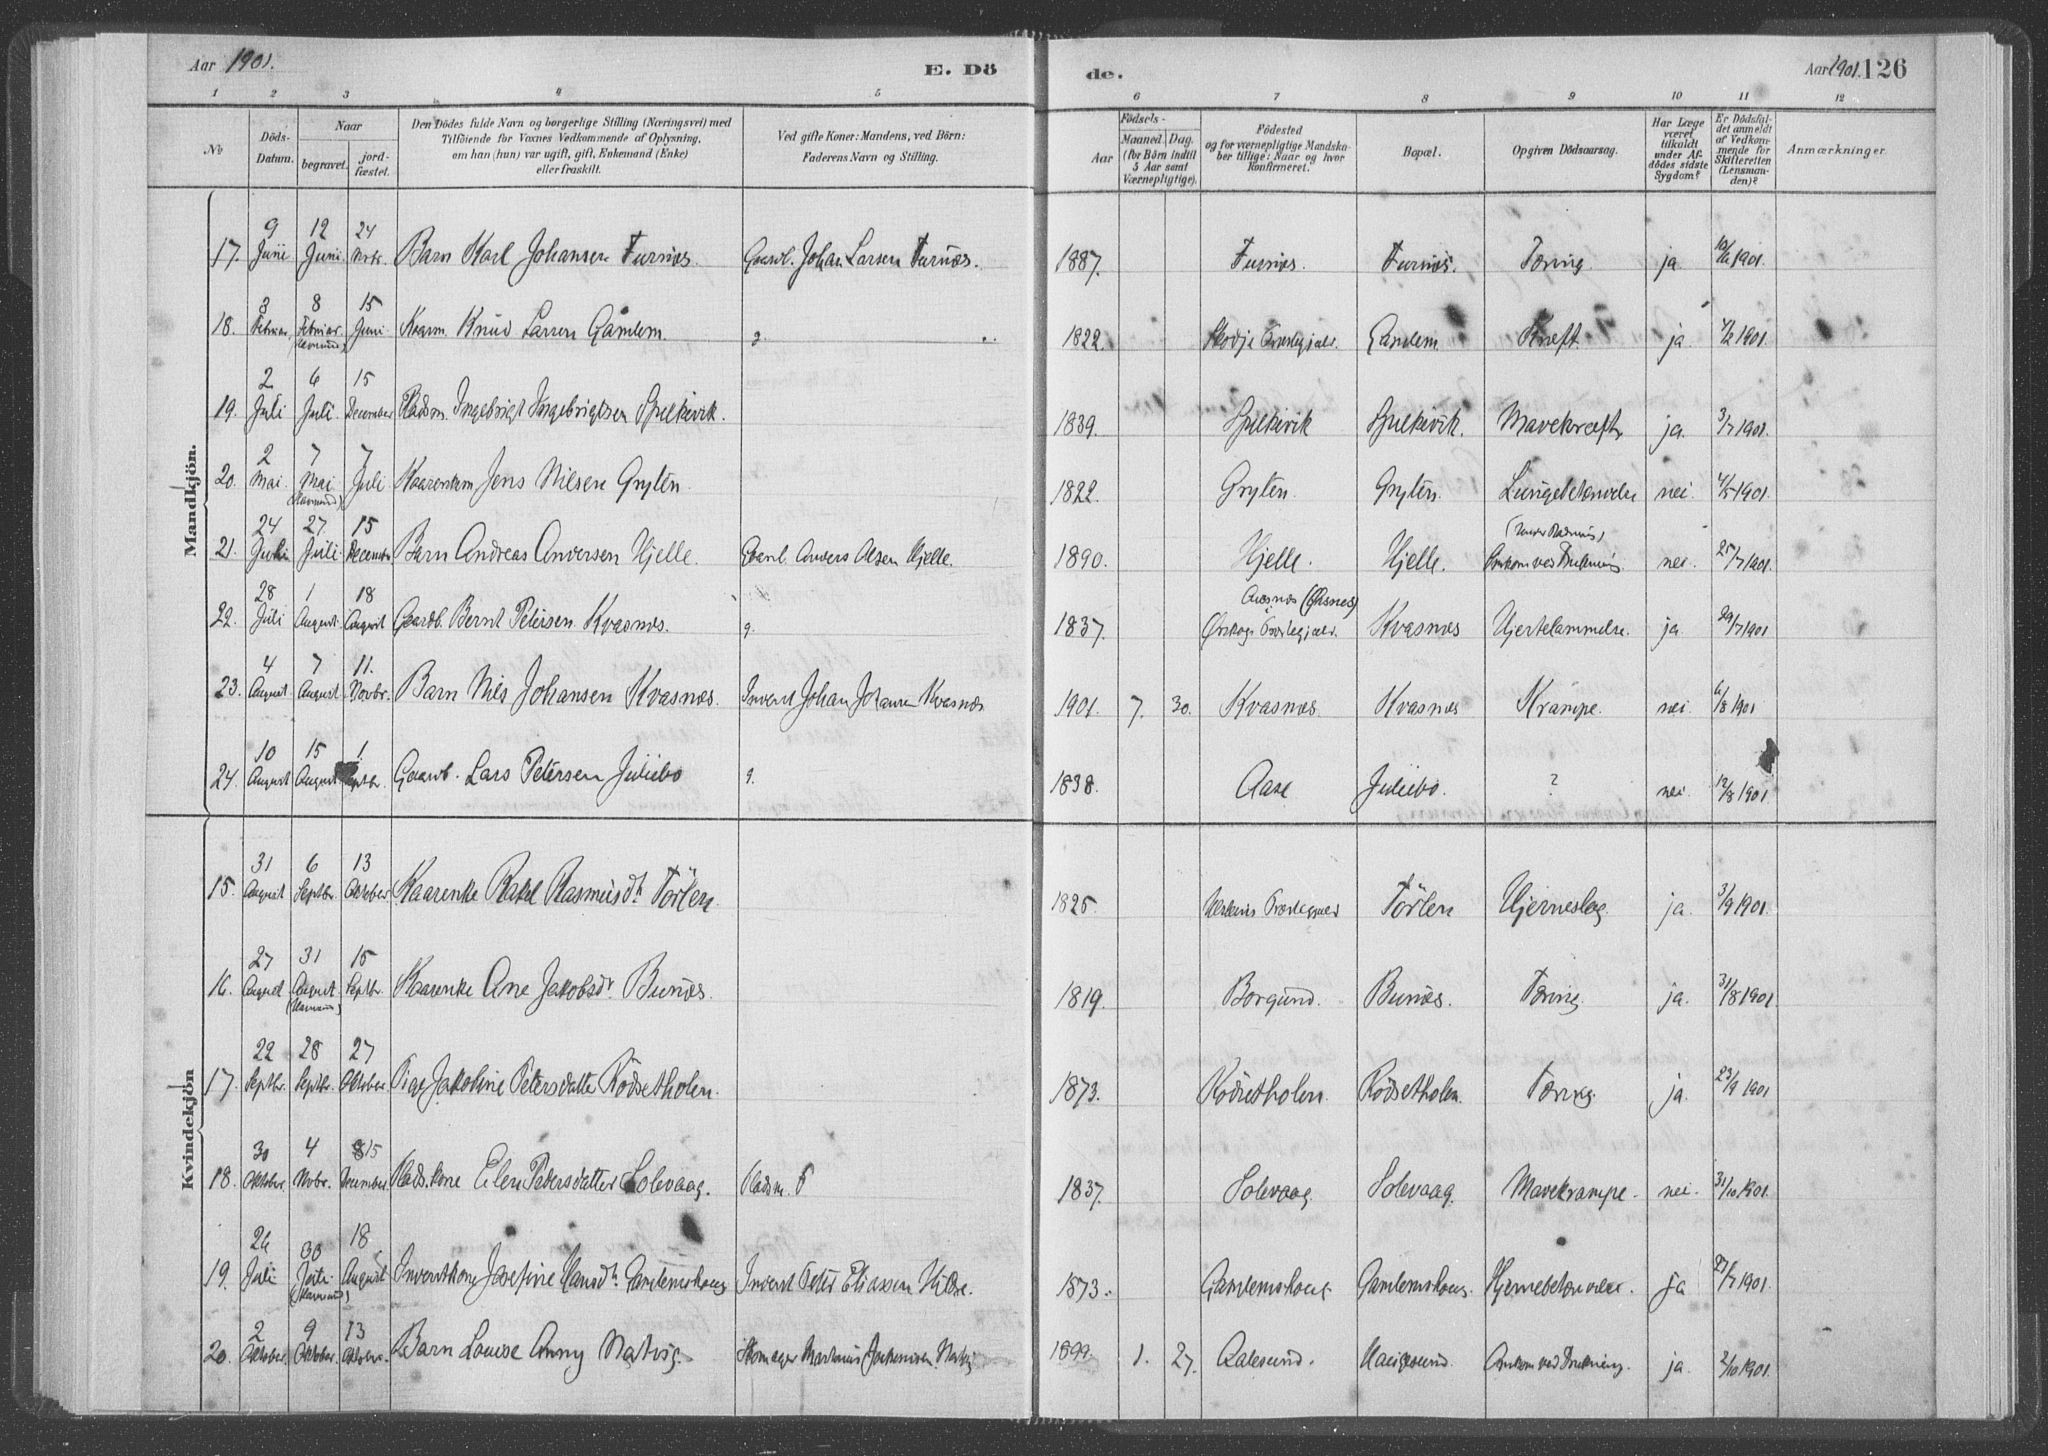 Aar 1901.
E. Dö
de.
Aar 1901. 126
1 2 3 4 5 6 7 8 9 10 11 12
No
Döds-Datum.
Naar
begravet.
jord-fæstet.
Den Dödes fulde Navn og borgerlige Stilling (Næringsvei) med
Tilföiende for Voxnes Vedkommende af Oplysning,
om han (hun) var ugift, gift, Enkemand (Enke)
eller fraskilt.
Ved gifte Koner: Mandens, ved Börn:
Faderens Navn og Stilling.
Födsels-
Aar
Maaned. Dag.
(for Börn indtil
5 Aar samt
Værnepligtige).
Födested
og for værnepligtige Mandska-
ber tillige: Naar og hvor
konfirmeret.
Bopæl.
Opgiven Dödsaarsag.
Har Læge
været
tilkaldt
under Af-
dödes sidste
Sygdom?
Er Dödsfal-
det anmeldt
af Vedkom-
mende for
Skifteretten
(Lensman-
den)?
Anmærkninger.
Mandkjön.
17. 9 Juni 12 Juni 24 Novbr. Barn Karl Johansen Furnæs. Gaardb. Johan Larsen Furnæs. 1887. Furnæs. Furnæs. Tæring. ja. 10/6 1901.
18. 3 Februar 8 Februar (Havnsund) 15 Juni Kaarm. Knud Larsen Gamlem. g. 1822. Skodje Præstegjæld. Gamlem Kræft. ja 4/2 1901.
19. 2 Juli 6 Juli 15 December Pladsm. Ingebrigt Ingebrigtsen Spilkevik. 1839. Spilkevik Spilkevik. Mavekræft. ja. 3/7 1901.
20. 2 Mai 7 Mai (Havnsund) 7 Juli Kaarenkem Jens Nilsen Gryten. 1822. Gryten. Gryten. Lungebetændelse nei. 4/5 1901.
21. 24 Juli 27 Juli 15 December Barn Andreas Andersen Hjelle. Gbarb. Anders Olsen Hjelle. 1890. Hjelle. Hjelle. (Under Badning) Omkom ved Drukning. nei. 25/7 1901.
22. 28 Juli 1 August 18 August Gaardb. Bernt Petersen Kvasnæs. g. 1837. (Øxnes) Ørskogs Præstegjæld. Kvasnæs Hjertelammelse. ja. 29/7 1901
23. 4 August 7 August 11. Novbr. Barn Nils Johansen Kvasnæs. Inderst Johan Johansen Kvasnæs 1901. 7. 30. Kvasnæs. Kvasnæs Krampe. nei. 6/8 1901
24. 10 August 15 August 1 Septbr. Gaardb. Lars Petersen Juliebø g. 1838. Aase Juliebø. ? nei. 12/8 1901
Kvindekjön
15. 31 August 6 Septbr. 13 Oktober Kaarenke Rakel Rasmusdtr. Törlen. 1825. Præstegjæld Törlen Hjerneslag ja. 3/9 1901.
16. 27 August 31 August (Havnsund) 15 Septbr. Kaarenke Ane Jakobsdr. Bunæs. 1819. Borgund. Bunæs. Tæring. ja. 31/8 1901
17. 22 Septbr. 28 Septbr. 27 Oktober Pige Jakoline Petersdatter Rödsetholen. 1873. Rödsetholen. Rödsetholen. Tæring. ja. 23/9 1901
18. 30 Oktober. 4 Novbr. 15 December Pladskone Elen Petersdatter Solevaag. Pladsm. P 1837. Solevaag Solevaag. Mavekrampe. nei. 31/10 1901.
19. 26 Juli 30 Juli (Havnsund) 18. August Inderstkone Josefine Hansdtr. Gamlemshaug Inderst Peter Eliassen Hildre. 1873. Gamlemshaug Gamlemshaug. Hjernebetændelse. ja 27/7 1901.
20. 2 Oktober. 9 Oktober. 13 Oktober. Barn Louise Anny Natvig. Skomager Martinius Joakimsen Natvig 1899. 1. 27. Aalesund. Haugesund. Omkom ved Drukning. ja. 2/10 1901.